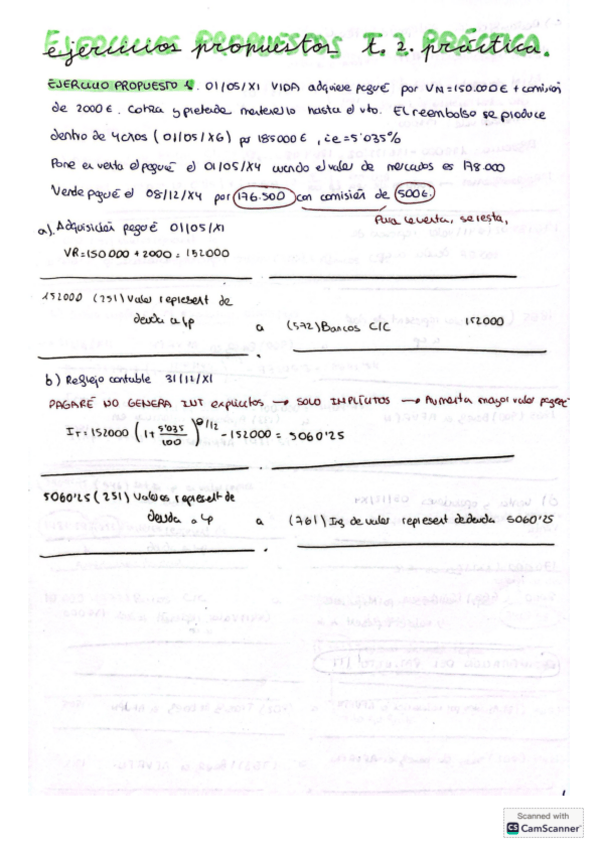 ejercicios propuestos t. 2. práctica.
EJERCICIO PROPUESTO 1. 01/05/X1 VIDA adquiere pagaré por VN=150.000€ + comisión
de 2000€. Cotiza y pretende mantenerlo hasta el vto. El reembolso se produce
dentro de 4 años (01/05/X6) por 185000€, i.e=5'035%
Pone en venta el pagaré el 01/05/X4 cuando el valor de mercado es 178.000
Vende pagaré el 08/12/X4 por 176.500 con comisión de 500€.
Para la venta, se resta,
a). Adquisición pagaré 01/05/X1
VR=150.000 + 2000 = 152000
152000 (251) Valor represent de
deuda a lp a (572) Bancos C/C 152000
b) Reflejo contable 31/12/X1
PAGARÉ NO GENERA INT explícitos → SOLO IMPLÍCITOS → Aumenta mayor valor pagaré
IT = 152000 (1+ 5'035/100)^8/12 - 152000 = 5060'25
5060'25 (251) Valores represent de
deuda a lp a (761) Ing. de valor represent de deuda 5060'25
1
Scanned with
CS CamScanner